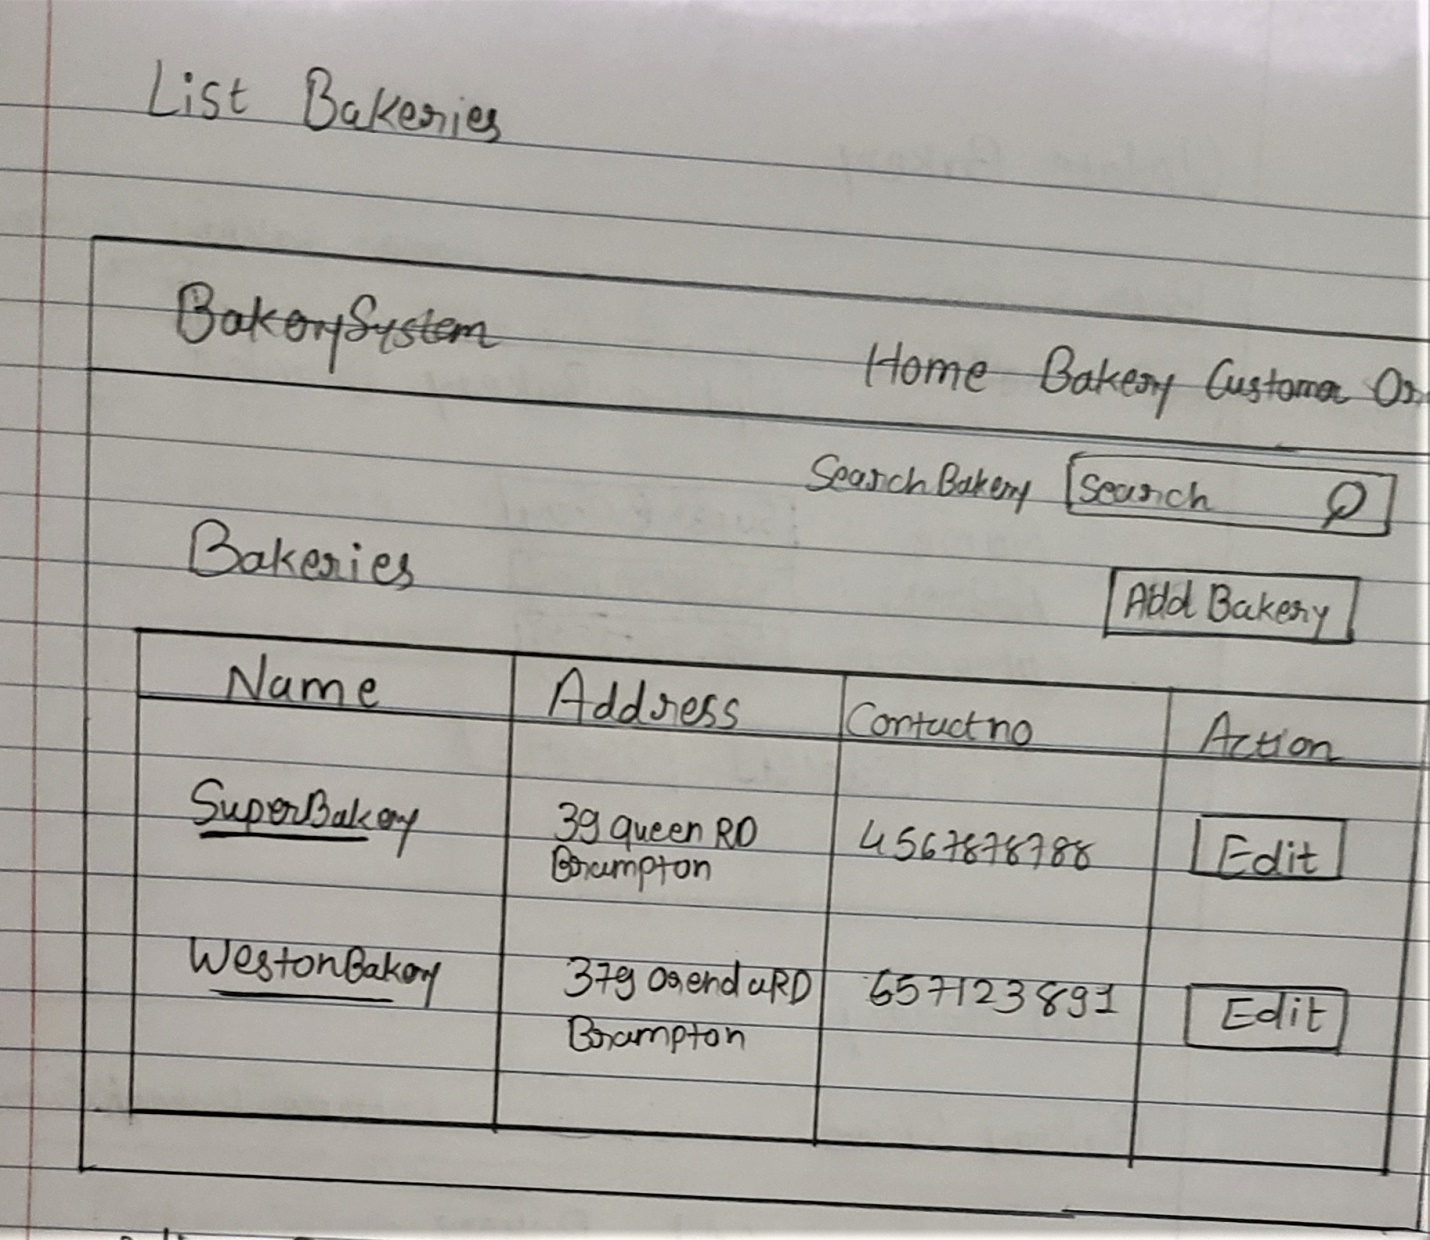 List Bakeries
BakerySystem
Home Bakery Customer
Search Bakery Search
Bakeries
Add Bakery
Name Address Contact no Action
SuperBakery 39 queen RD 4567878788 Edit
Brampton
WestonBakery 379 orenda RD 657123891 Edit
Brampton